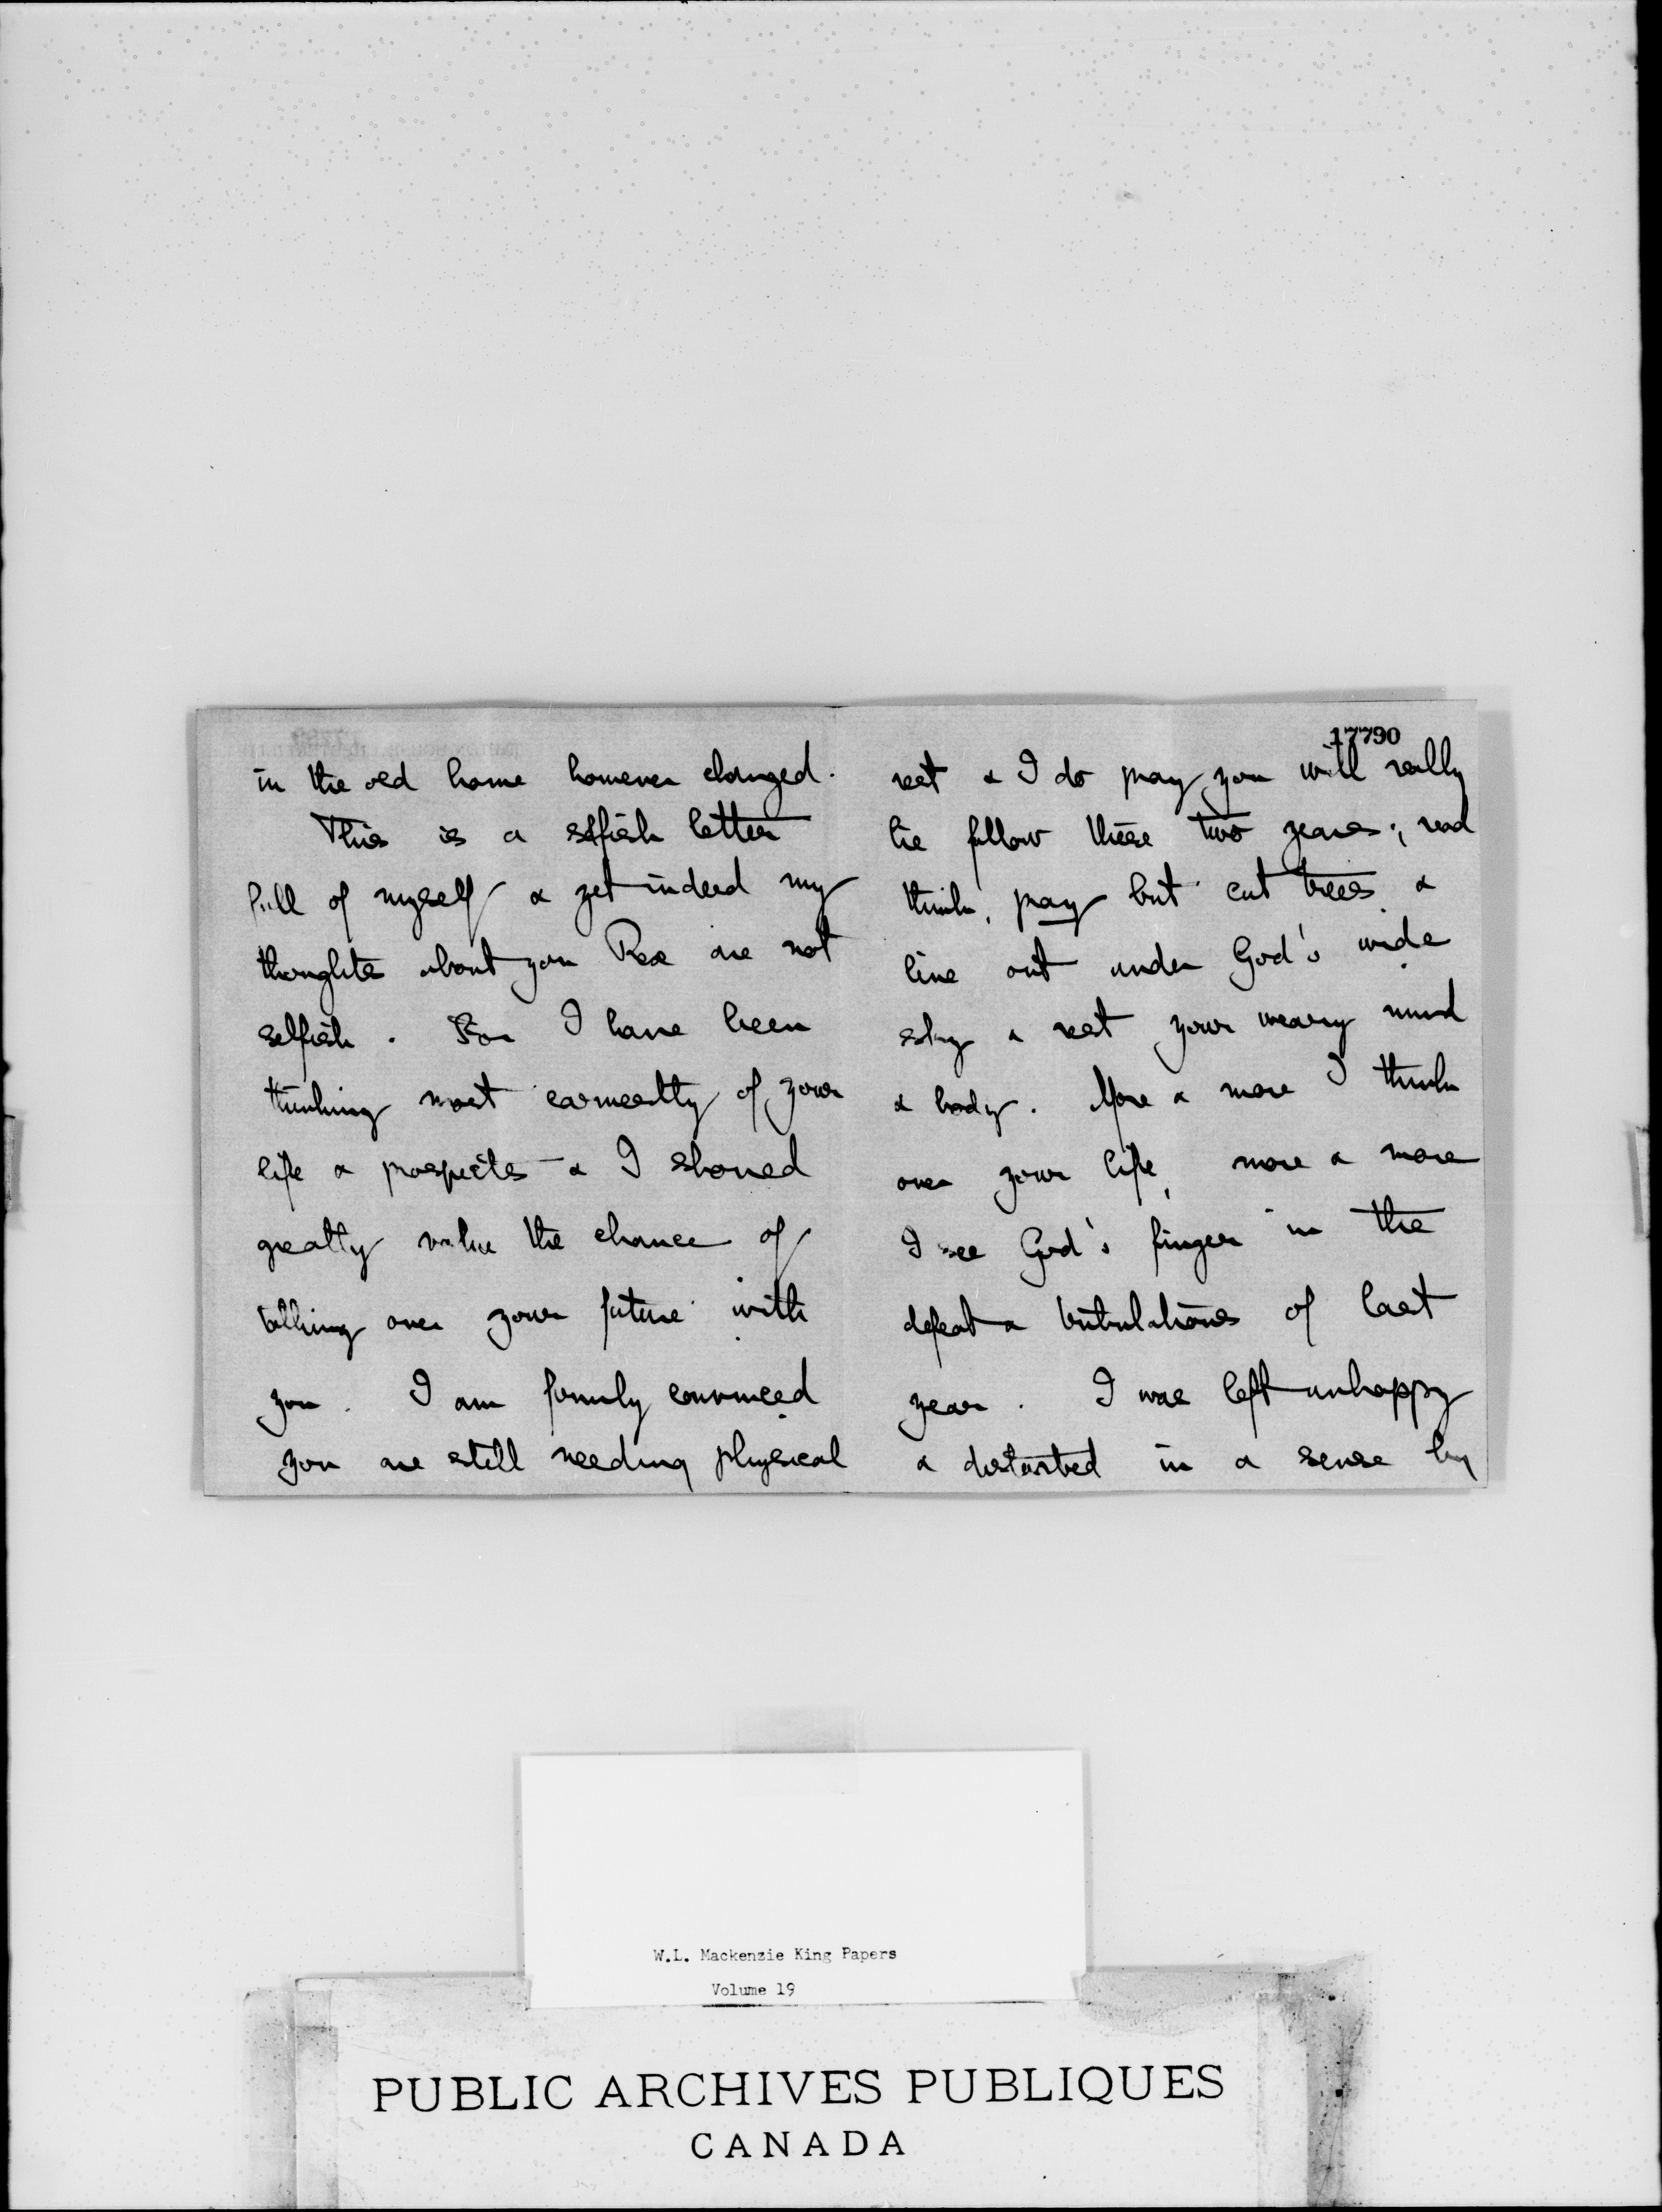 in the old home however changed.
This is a selfish letter
full of myself & yet indeed my
thoughts about you Rex are not
selfish. For I have been
thinking most earnestly of your
life & prospects & I should
greatly value the chance of
talking over your future with
you. I am firmly convinced
you are still needing physical
17790
rest & I do pray you will really
lie fallow these two years; read
think, pray but cut trees &
live out under God's wide
sky & rest your weary mind
& body. More & more I think
over your life, more & more
I see God's finger in the
defeat & tribulations of last
year. I was left unhappy
& disturbed in a sense by
W.L. Mackenzie King Papers
Volume 19
PUBLIC ARCHIVES PUBLIQUES
CANADA